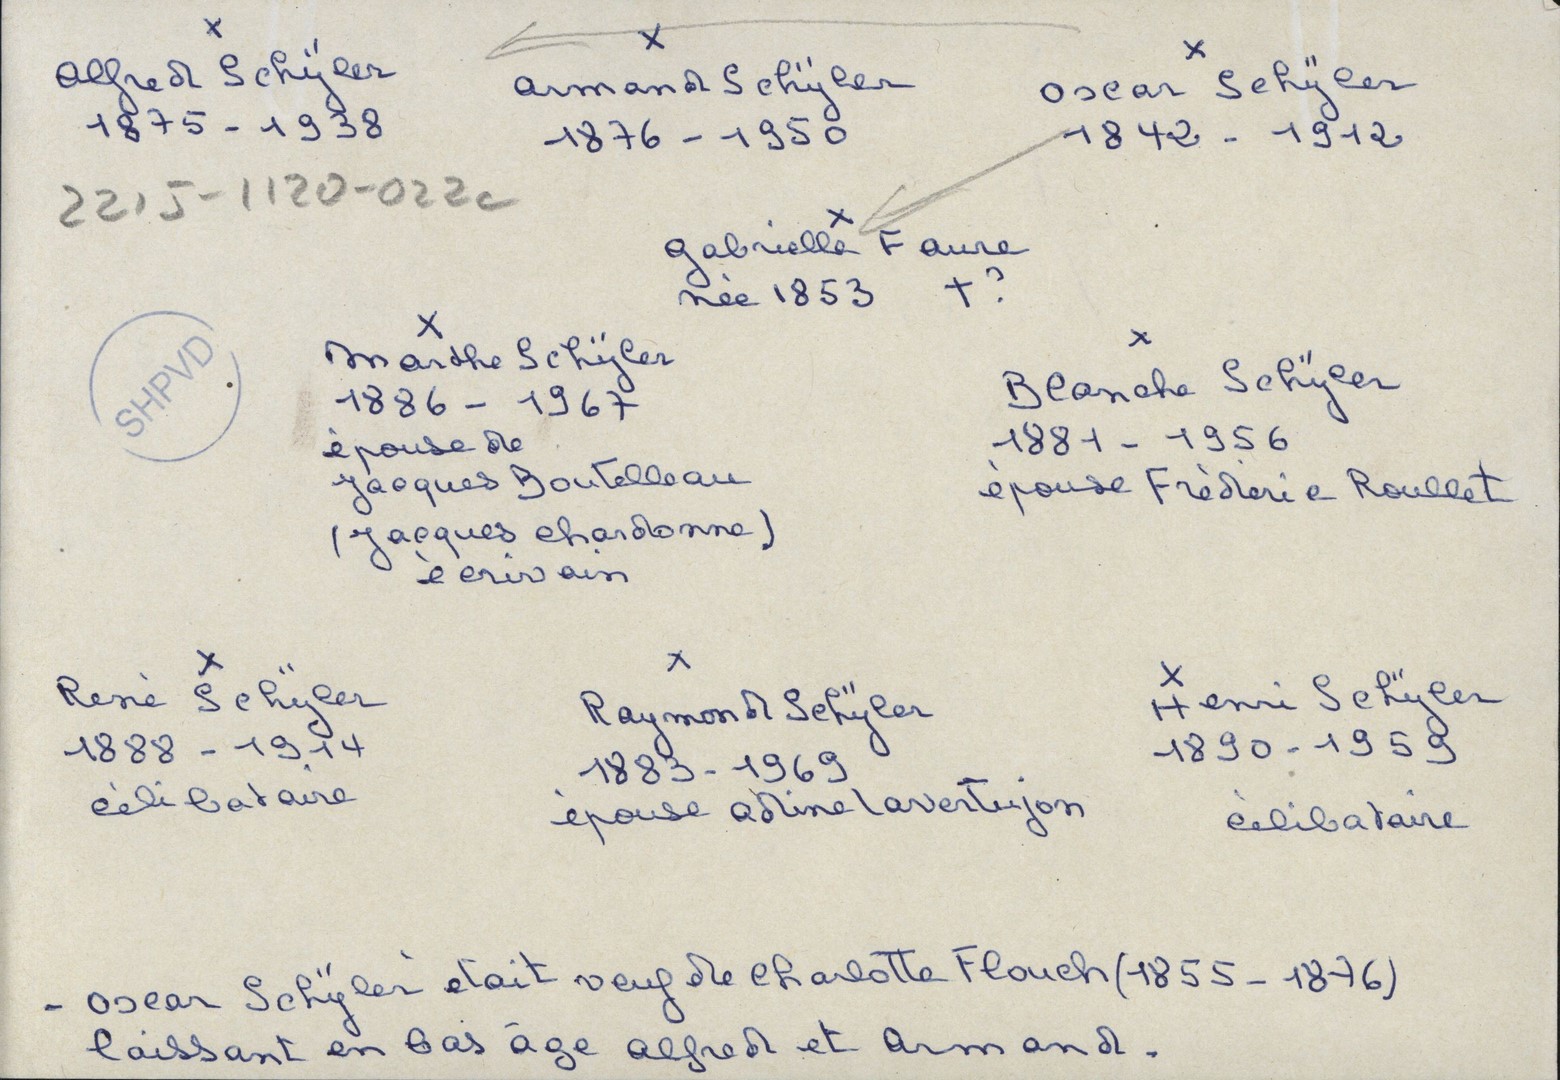 x x x
Alfred Schÿler Armand Schÿler Oscar Schÿler
1875 - 1938 1876 - 1950 1842 - 1912
2215-1120-022c
x
Gabrielle Faure
née 1853 †?
SHPVD
x x
Marthe Schÿler Blanche Schÿler
1886 - 1967 1881 - 1956
épouse de épouse Frédéric Roullet
Jacques Boutelleau
(Jacques Chardonne)
écrivain
x x x
René Schÿler Raymond Schÿler Henri Schÿler
1888 - 1914 1883 - 1969 1890 - 1959
célibataire épouse Adine Lavertujon célibataire
- Oscar Schÿler était veuf de Charlotte Flouch (1855 - 1876)
laissant en bas âge Alfred et Armand.